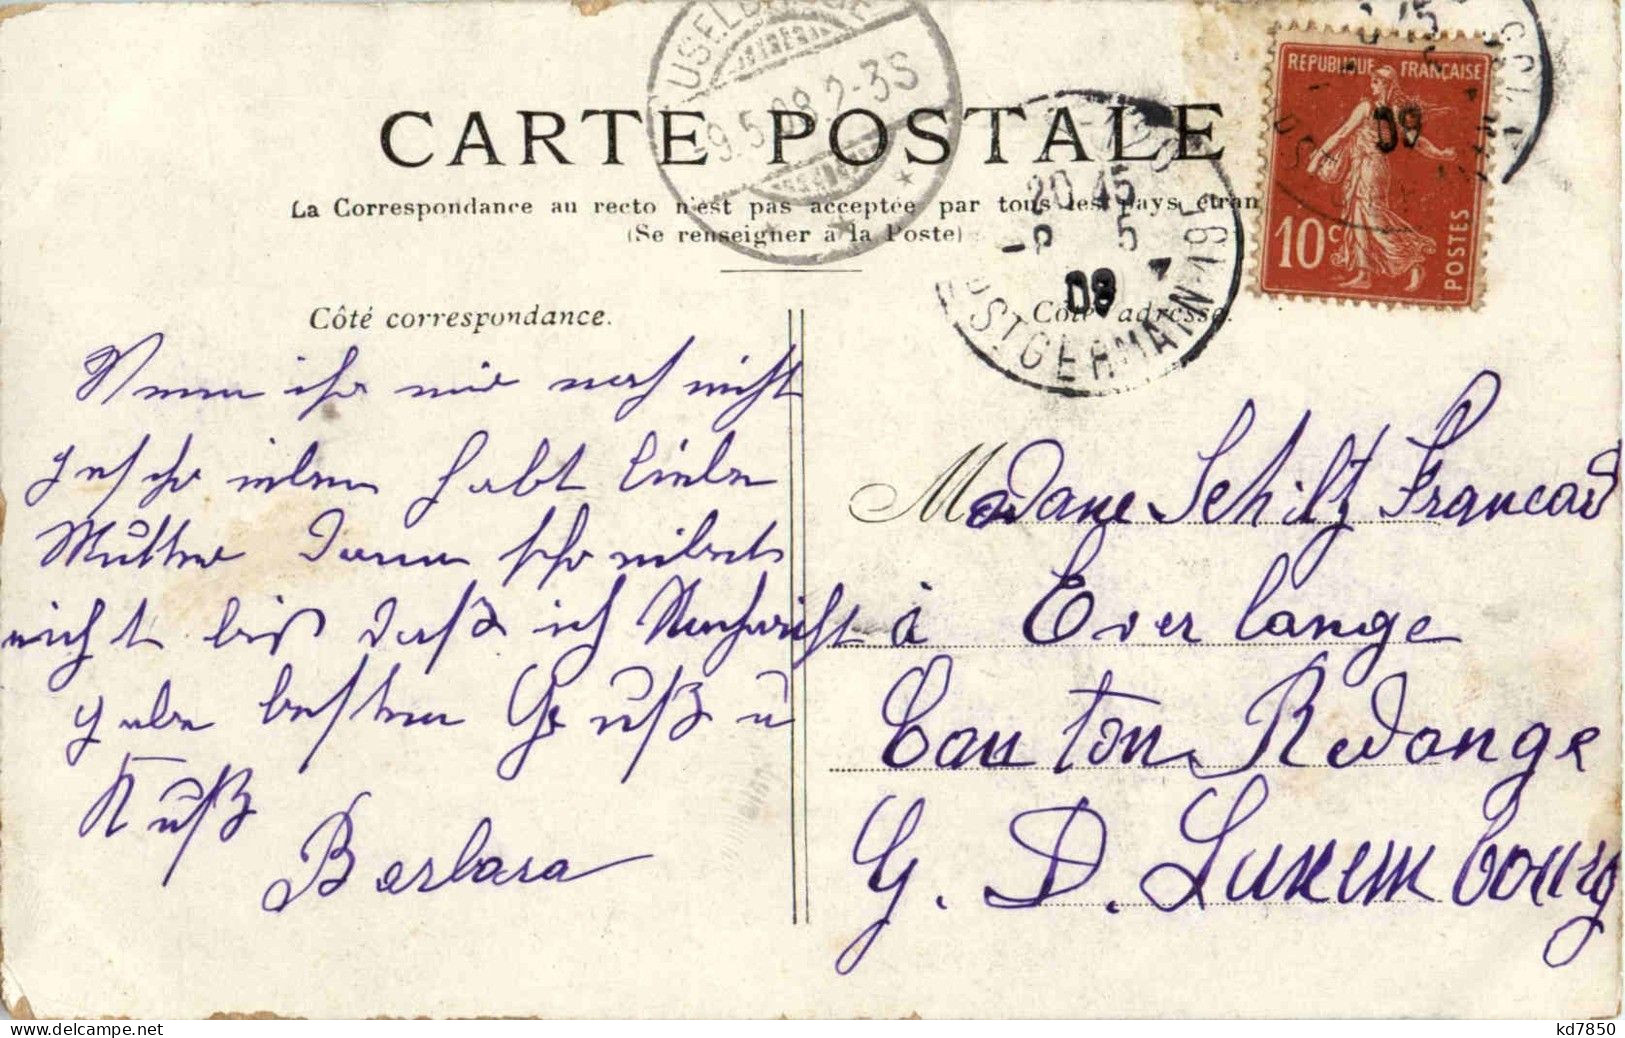 CARTE POSTALE
La Correspondance au recto n'est pas acceptée par tous les pays étran
(Se renseigner à la Poste)
USELDANGE
9.5.08 2-3S
20 45
8 5
09
BD ST GERMAIN 195
REPUBLIQUE FRANÇAISE
10c
POSTES
09
Côté correspondance.
Côté adresse.
Wenn ihr mir noch nicht
geschrieben habt liebe
Mutter dann schreibet
nicht bis daß ich Nachricht
gebe besten Gruß u
Kuß
Barbara
Madame Schiltz Francois
à Everlange
Canton Redange
G. D. Luxembourg
kd7850